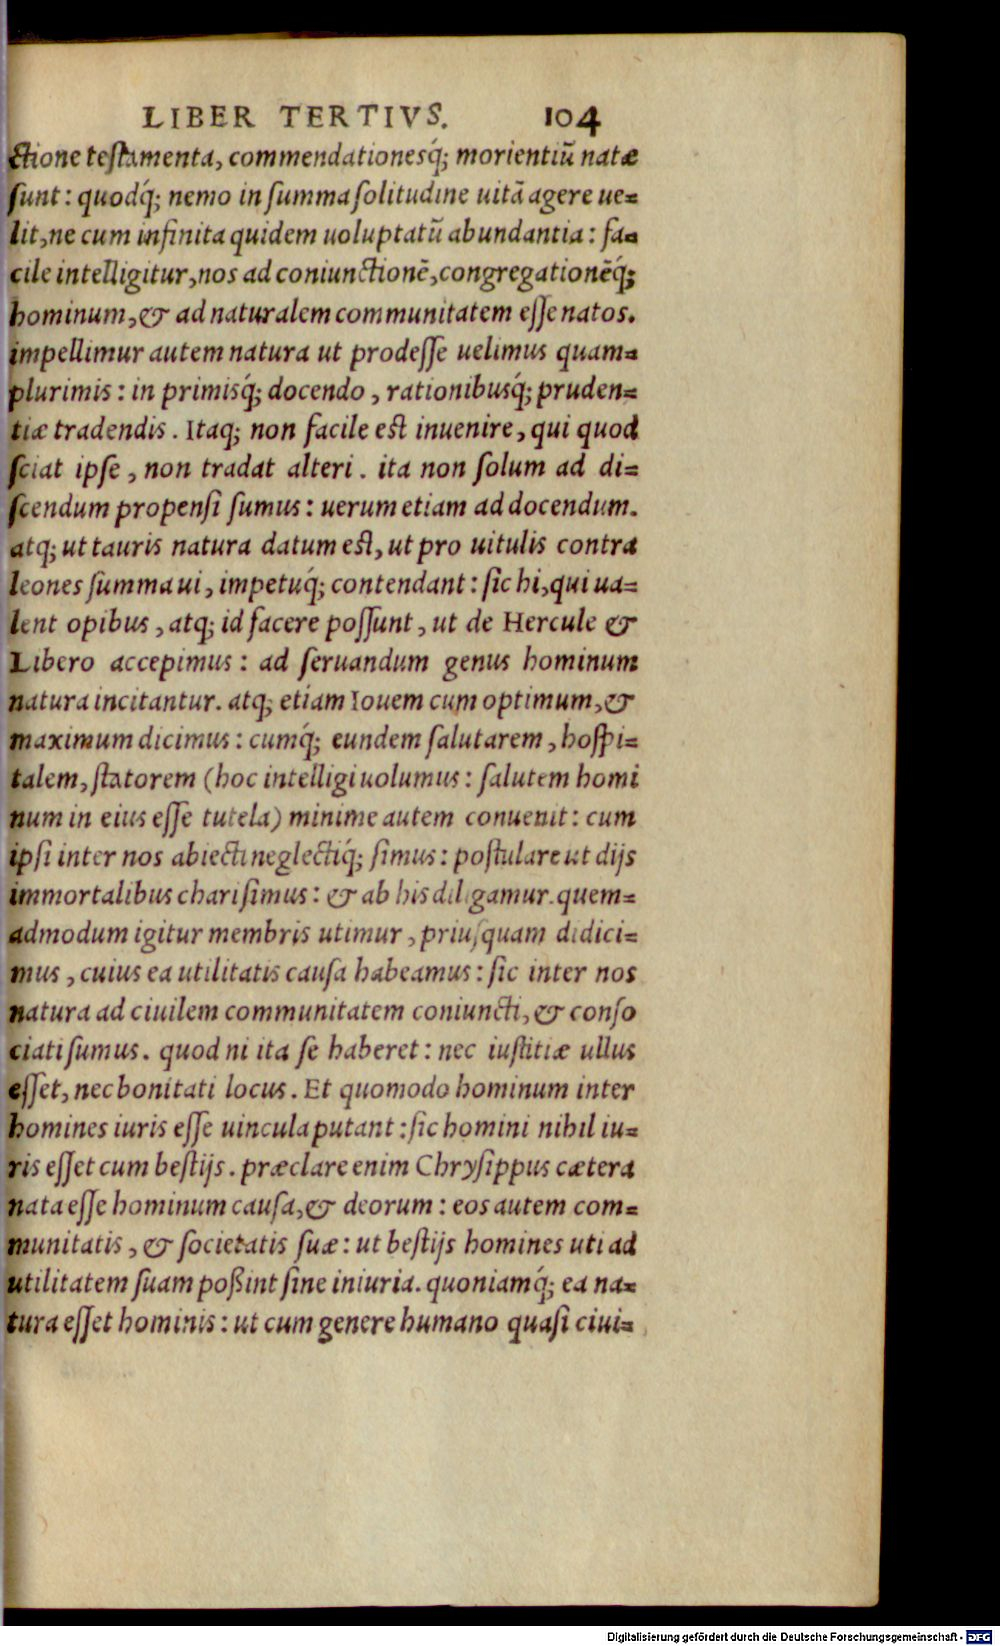 LIBER TERTIVS. 104
ctione testamenta, commendationesq́; morientiũ natæ
ſunt: quodq́; nemo in ſumma ſolitudine uitã agere ue=
lit, ne cum infinita quidem uoluptatũ abundantia: fa=
cile intelligitur, nos ad coniunctionẽ, congregationẽq́;
hominum, & ad naturalem communitatem eſſe natos.
impellimur autem natura ut prodeſſe uelimus quam=
plurimis: in primisq́; docendo, rationibusq́; pruden=
tiæ tradendis. Itaq; non facile est inuenire, qui quod
ſciat ipſe, non tradat alteri. ita non ſolum ad di=
ſcendum propenſi ſumus: uerum etiam ad docendum.
atq; ut tauris natura datum est, ut pro uitulis contra
leones ſumma ui, impetuq́; contendant: ſic hi, qui ua=
lent opibus, atq; id facere poſſunt, ut de Hercule &
Libero accepimus: ad ſeruandum genus hominum
natura incitantur. atq; etiam Iouem cum optimum, &
maximum dicimus: cumq́; eundem ſalutarem, hoſpi=
talem, ſtatorem (hoc intelligi uolumus: ſalutem homi
num in eius eſſe tutela) minime autem conuenit: cum
ipſi inter nos abiecti neglectiq́; ſimus: poſtulare ut dijs
immortalibus chariſimus: & ab his diligamur. quem=
admodum igitur membris utimur, priuſquam didici=
mus, cuius ea utilitatis cauſa habeamus: ſic inter nos
natura ad ciuilem communitatem coniuncti, & conſo
ciati ſumus. quod ni ita ſe haberet: nec iuſtitiæ ullus
eſſet, nec bonitati locus. Et quomodo hominum inter
homines iuris eſſe uincula putant: ſic homini nihil iu=
ris eſſet cum beſtijs. præclare enim Chryſippus cætera
nata eſſe hominum cauſa, & deorum: eos autem com=
munitatis, & ſocietatis ſuæ: ut beſtijs homines uti ad
utilitatem ſuam poßint ſine iniuria. quoniamq́; ea na=
tura eſſet hominis: ut cum genere humano quaſi ciui=
Digitalisierung gefördert durch die Deutsche Forschungsgemeinschaft - DFG